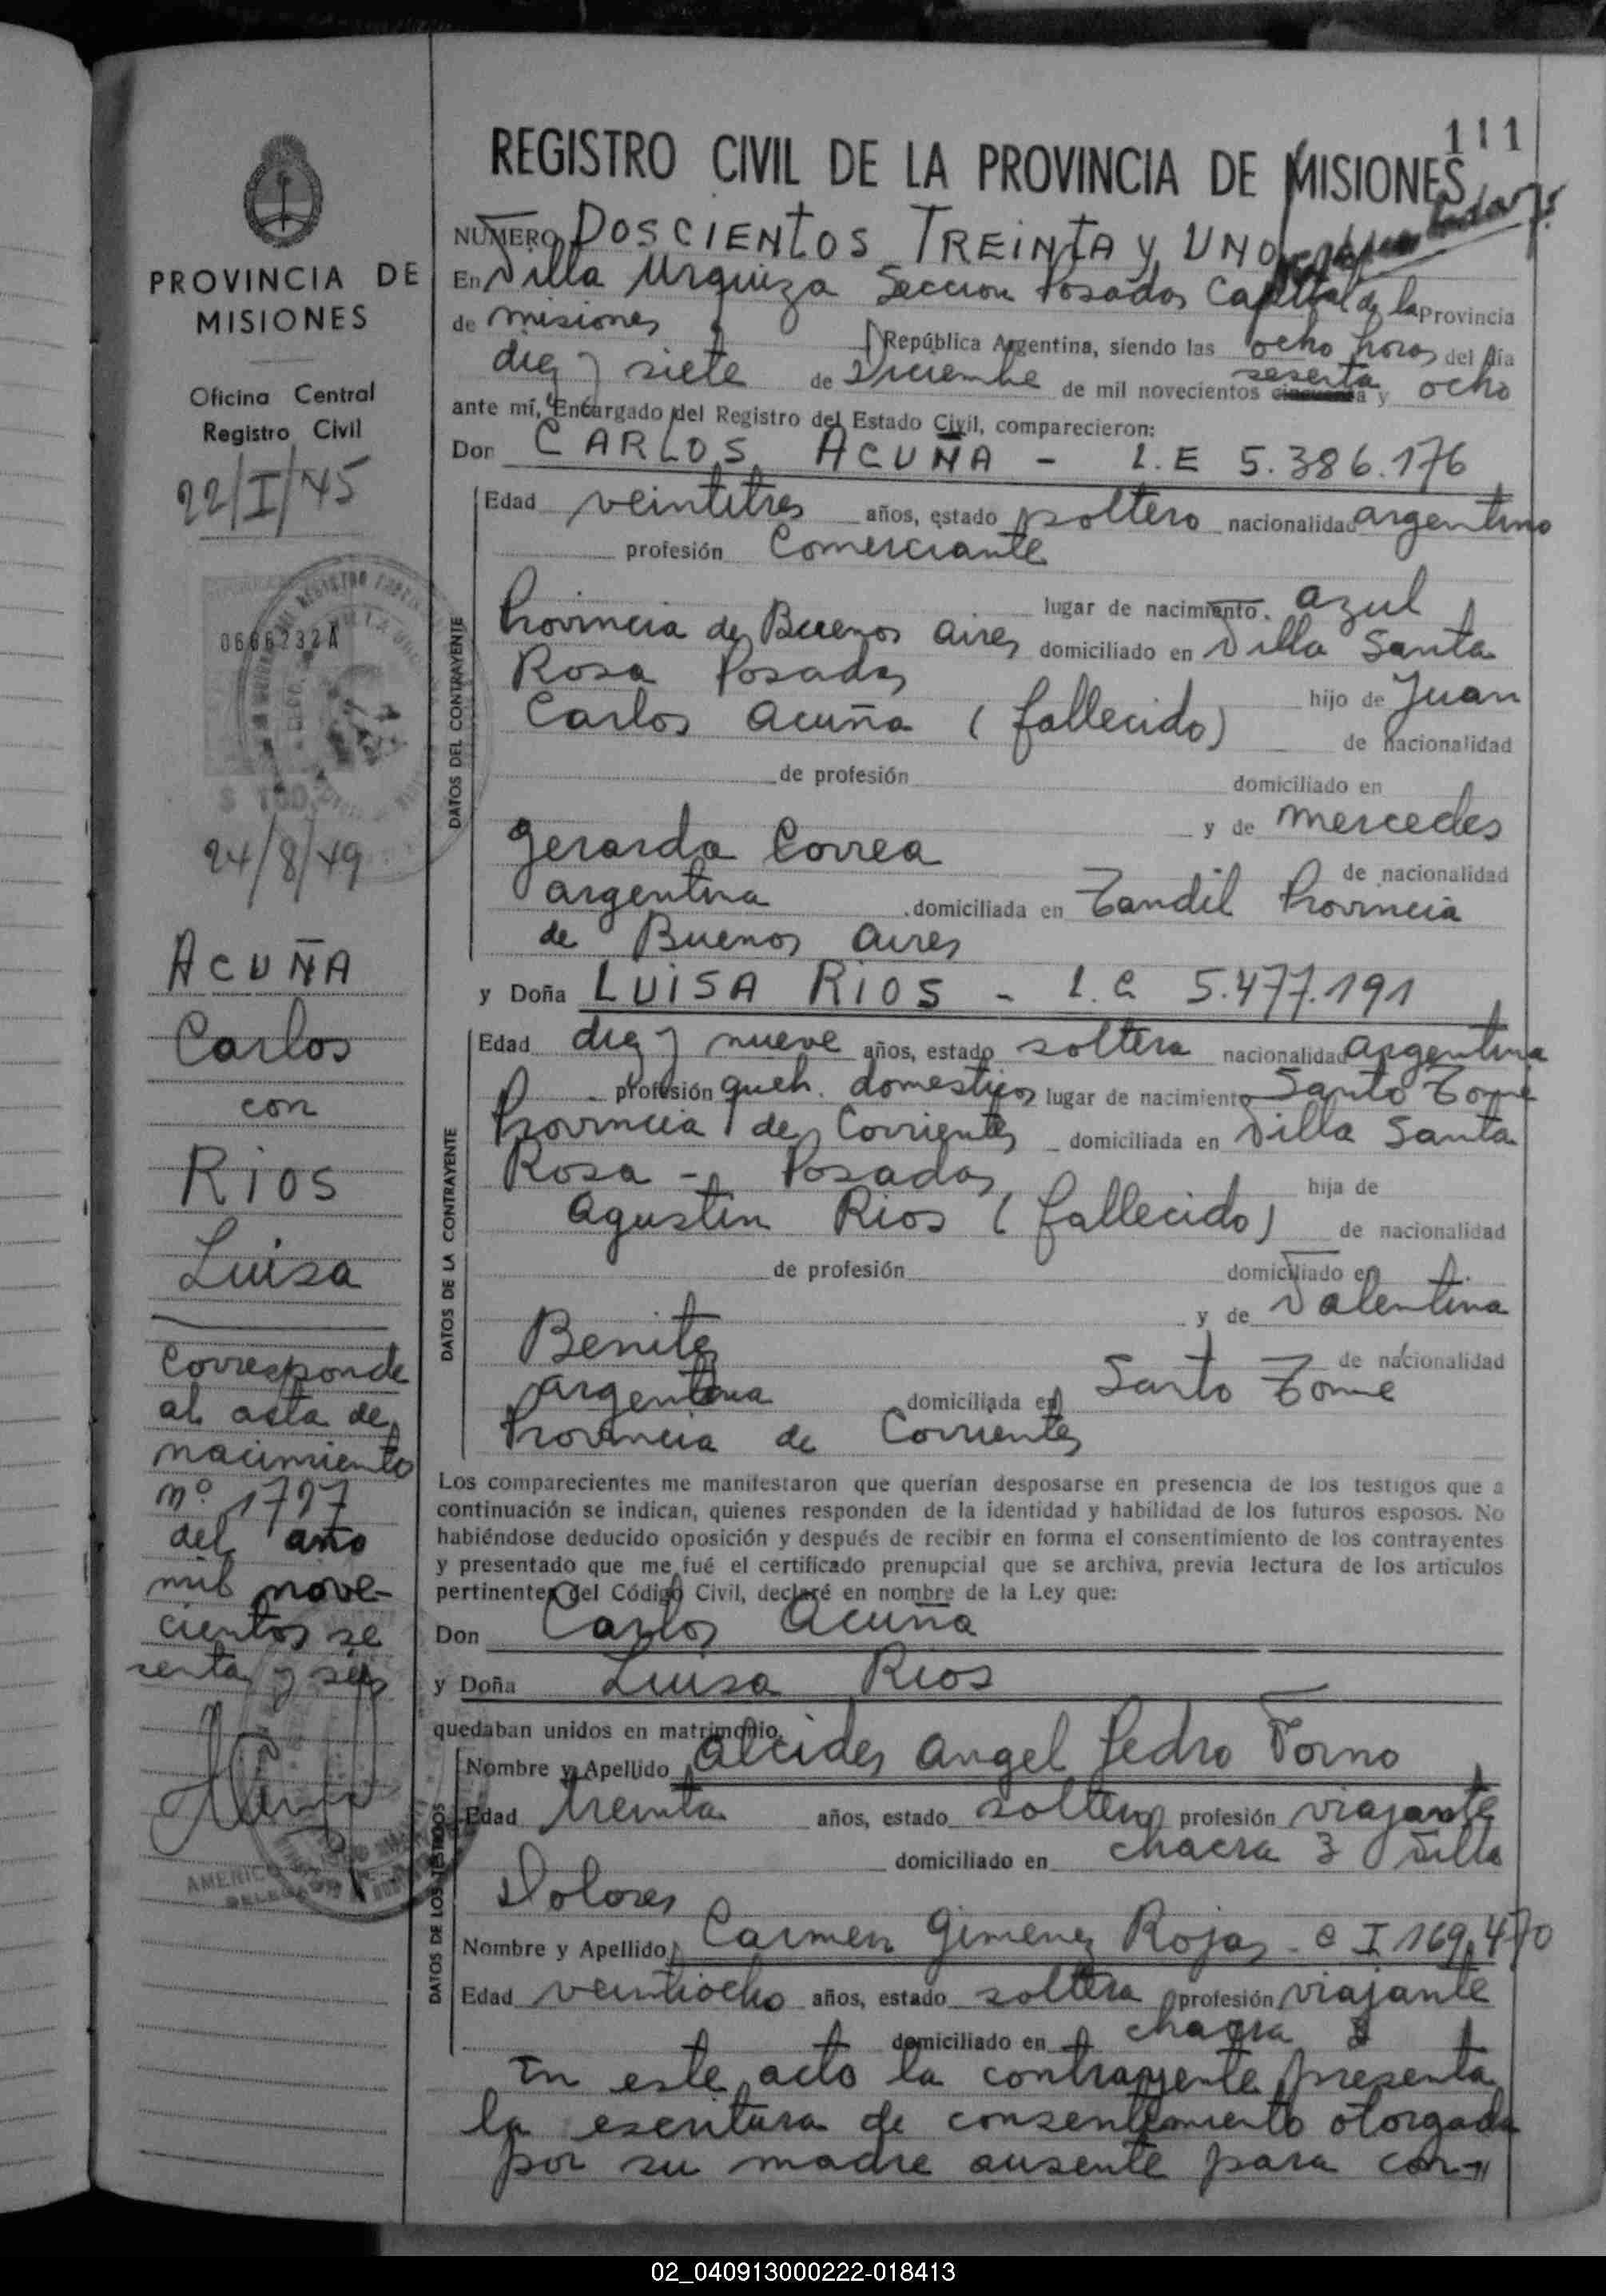 111
REGISTRO CIVIL DE LA PROVINCIA DE MISIONES
NÚMERO DOSCIENTOS TREINTA Y UNO
En Villa Urquiza Seccion Posadas Capital de la Provincia
de Misiones República Argentina, siendo las ocho horas del día
diez y siete de Diciembre de mil novecientos sesenta cincuenta y ocho
ante mí, Encargado del Registro del Estado Civil, comparecieron:
Don CARLOS ACUÑA - L.E 5.386.176
DATOS DEL CONTRAYENTE
Edad veintitres años, estado soltero nacionalidad argentino
profesión Comerciante
lugar de nacimiento. Azul
Provincia de Buenos Aires domiciliado en Villa Santa
Rosa Posadas
hijo de Juan
Carlos Acuña (fallecido)
de nacionalidad
de profesión domiciliado en
y de Mercedes
Gerarda Correa
de nacionalidad
argentina domiciliada en Tandil Provincia
de Buenos Aires
y Doña LUISA RIOS - L.C 5.477.191
DATOS DE LA CONTRAYENTE
Edad diez y nueve años, estado soltera nacionalidad argentina
profesión queh. domesticos lugar de nacimiento Santo Tome
Provincia de Corrientes domiciliada en Villa Santa
Rosa - Posadas
hija de
Agustin Rios (fallecido)
de nacionalidad
de profesión domiciliado en
y de Valentina
Benitez
de nacionalidad
argentina domiciliada en Santo Tome
Provincia de Corrientes
Los comparecientes me manifestaron que querían desposarse en presencia de los testigos que a
continuación se indican, quienes responden de la identidad y habilidad de los futuros esposos. No
habiéndose deducido oposición y después de recibir en forma el consentimiento de los contrayentes
y presentado que me fué el certificado prenupcial que se archiva, previa lectura de los artículos
pertinentes del Código Civil, declaré en nombre de la Ley que:
Don Carlos Acuña
y Doña Luisa Rios
quedaban unidos en matrimonio.
DATOS DE LOS TESTIGOS
Nombre y Apellido Alcides Angel Pedro Forno
Edad treinta años, estado soltero profesión viajante
domiciliado en chacra 3 Villa
Dolores
Nombre y Apellido Carmen Gimenez Rojas - C I 169.470
Edad veintiocho años, estado soltera profesión viajante
domiciliado en chacra 3
En este acto la contrayente presenta
la escritura de consentimiento otorgada
por su madre ausente para con-
PROVINCIA DE
MISIONES
Oficina Central
Registro Civil
22/I/45
0666232A
$ 100
24/8/49
ACUÑA
Carlos
con
RIOS
Luisa
Corresponde
al acta de
nacimiento
nº 1797
del año
mil nove-
cientos se
senta y seis
02_040913000222-018413